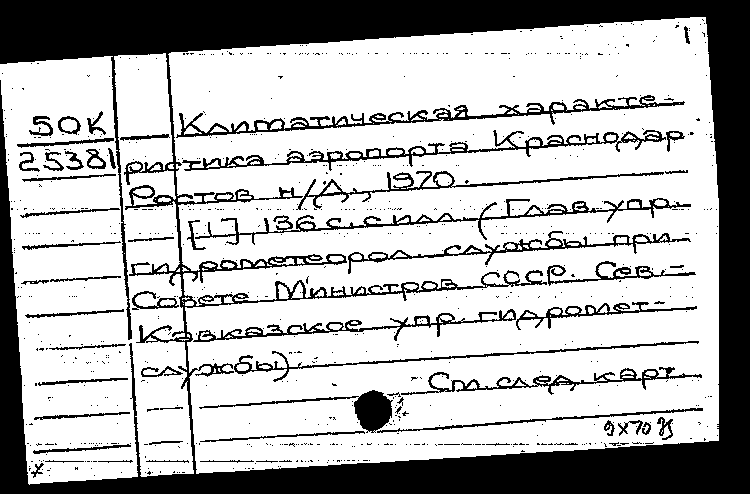 1
50К Климатическая характе-
25381 ристика аэропорта Краснодар.
Ростов н/Д., 1970.
[1], 136 с. с илл. (Глав. упр.
гидрометеорол. службы при
Совете Министров СССР. Сев.-
Кавказское упр. гидромет-
службы)
См. след. карт.